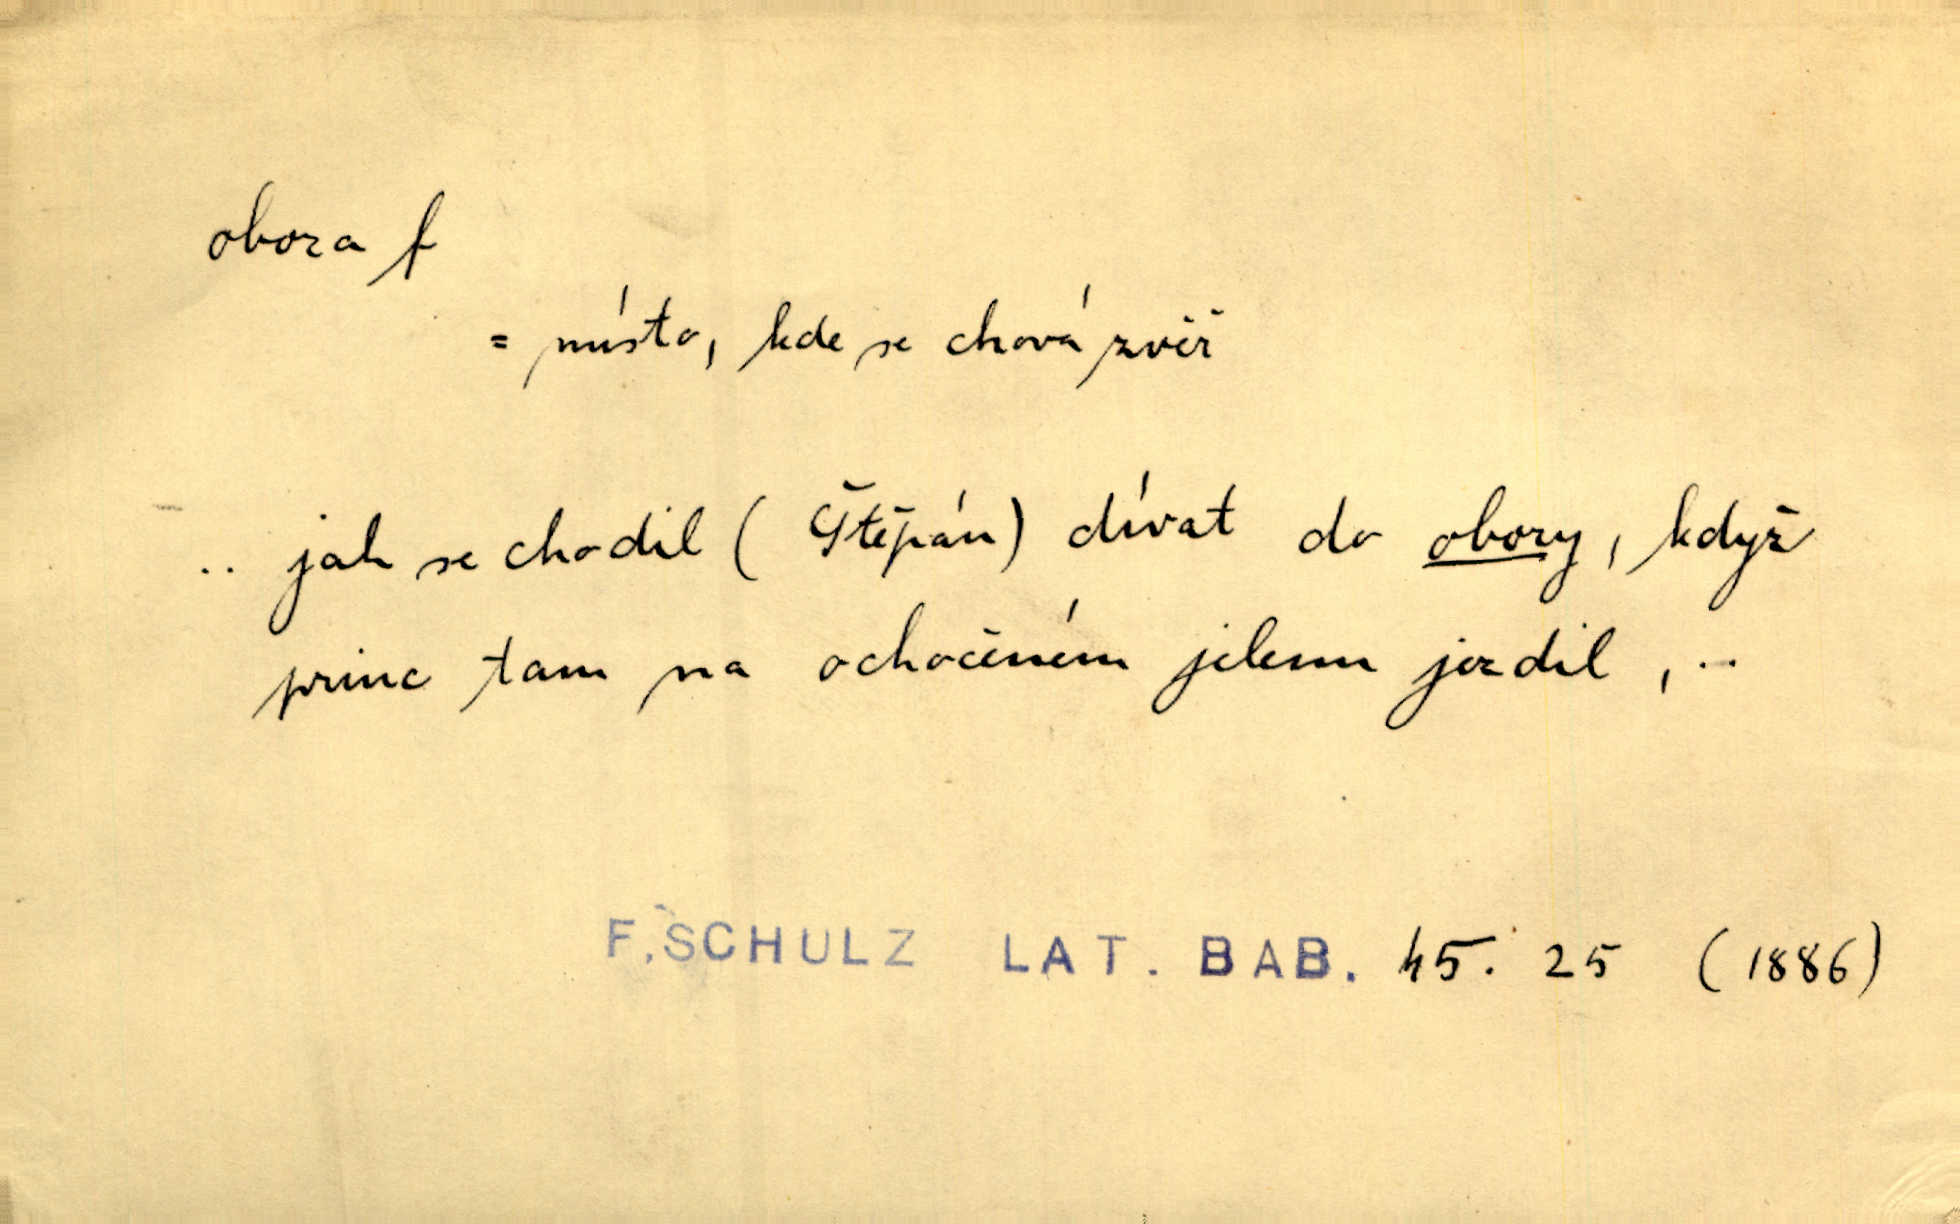 obora f
= místo, kde se chová zvěř
.. jak se chodil ( Štěpán) dívat do obory, když
princ tam na ochočeném jelenu jezdil, ..
F. SCHULZ LAT. BAB. 45. 25 (1886)